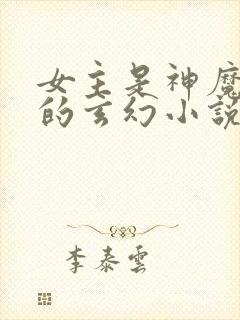 女主是神魔
的玄幻小説
李泰雲